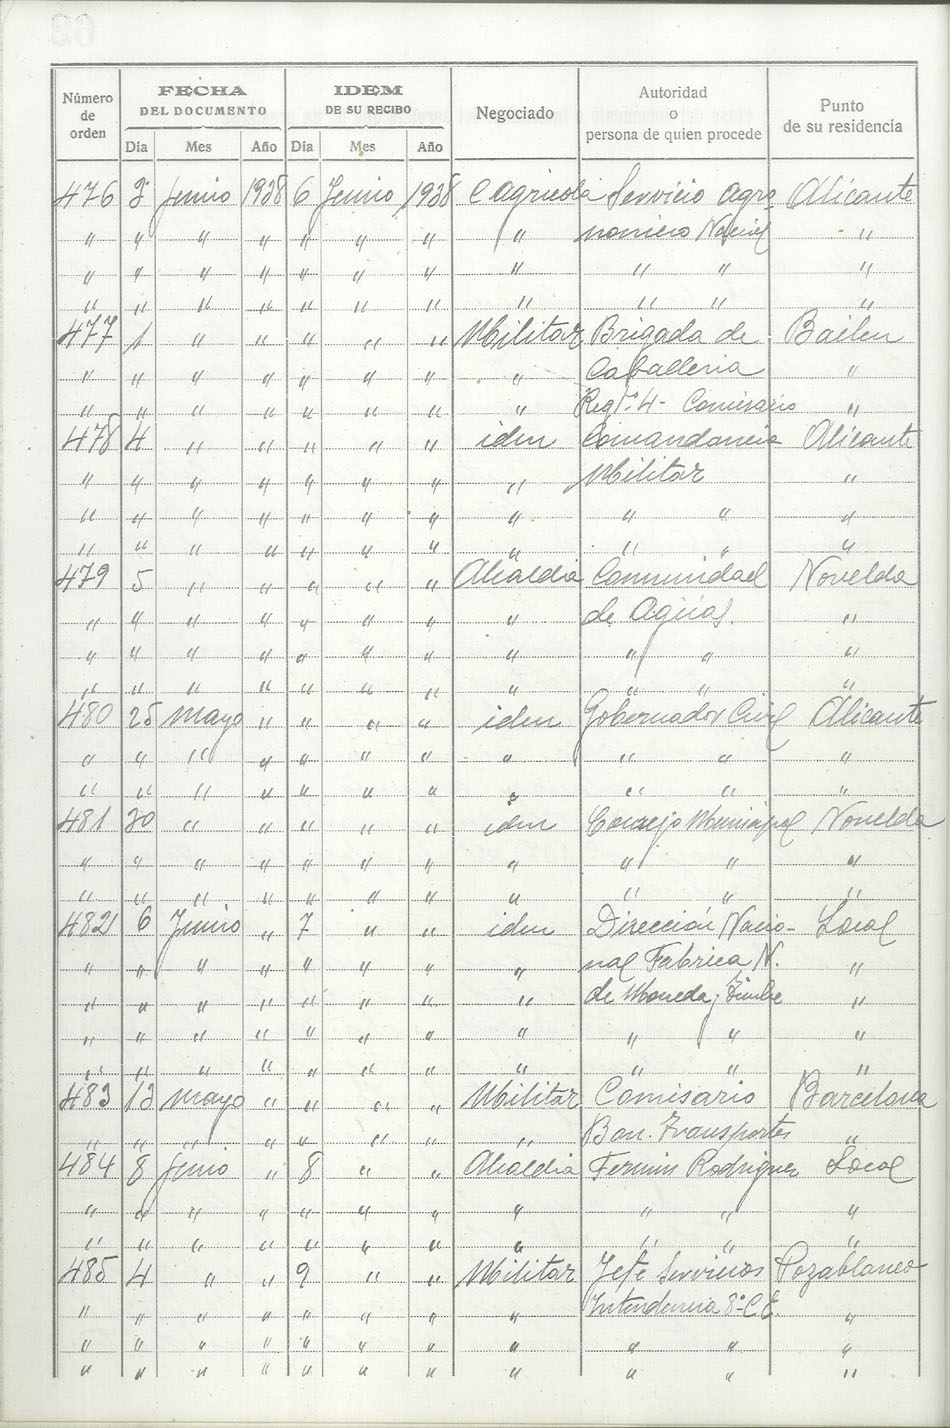 Número de orden | FECHA DEL DOCUMENTO | IDEM DE SU RECIBO | Negociado | Autoridad o persona de quien procede | Punto de su residencia
Día | Mes | Año | Día | Mes | Año
476 3 Junio 1938 6 Junio 1938 C agricola Servicio agro Alicante
" " " " " " " " nomico Nacional "
" " " " " " " " " " "
" " " " " " " " " " "
477 1 " " " " " Militar Brigada de Bailen
" " " " " " " " Caballeria "
" " " " " " " " Regt. 4- Comisario "
478 4 " " " " " idem Comandancia Alicante
" " " " " " " " Militar "
" " " " " " " " " " "
" " " " " " " " " " "
479 5 " " " " " Alcaldia Comunidad Novelda
" " " " " " " " de Aguas. "
" " " " " " " " " " "
" " " " " " " " " " "
480 25 mayo " " " " idem Gobernador Civil Alicante
" " " " " " " " " " "
" " " " " " " " " " "
481 30 " " " " " idem Consejo Municipal Novelda
" " " " " " " " " " "
" " " " " " " " " " "
482 6 Junio " 7 " " idem Dirección Nacio- Local
" " " " " " " " nal Fabrica N. "
" " " " " " " " de Moneda y Timbre "
" " " " " " " " " " "
" " " " " " " " " " "
483 13 mayo " " " " Militar Comisario Barcelona
" " " " " " " " Bon. Transportes "
484 8 Junio " 8 " " Alcaldia Fermin Rodriguez Local
" " " " " " " " " " "
" " " " " " " " " " "
485 4 " " 9 " " Militar Jefe Servicios Pozablanco
" " " " " " " " Intendencia 8º C.E. "
" " " " " " " " " " "
" " " " " " " " " " "